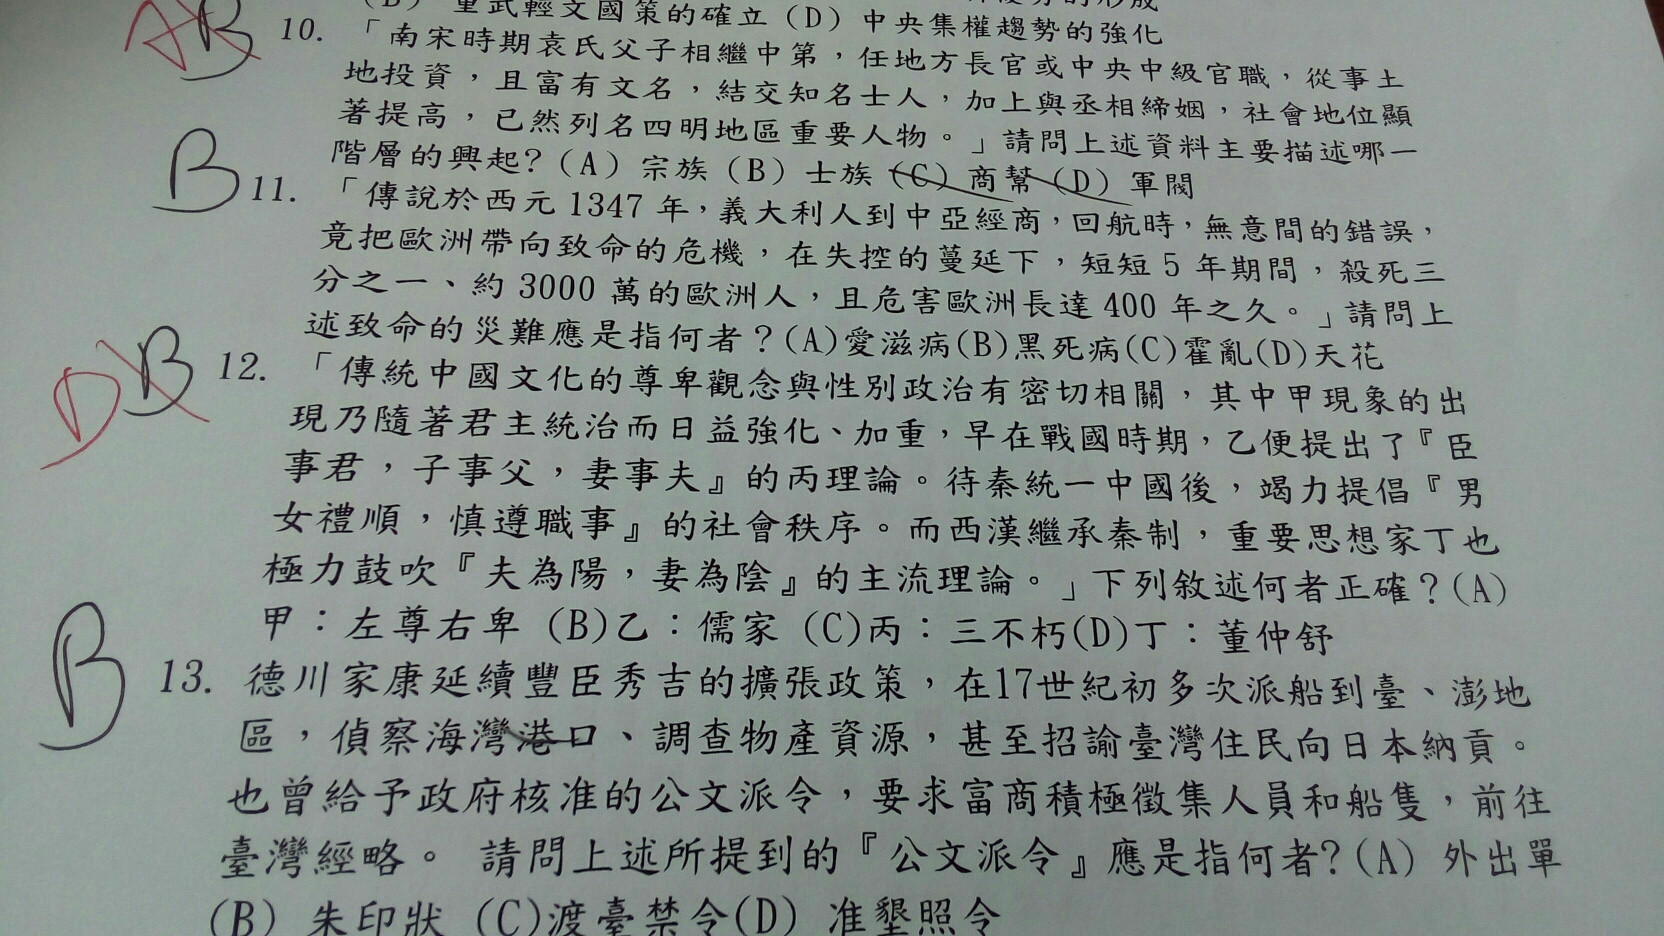 (B) 重武輕文國策的確立 (D) 中央集權趨勢的強化
AB 10. 「南宋時期袁氏父子相繼中第，任地方長官或中央中級官職，從事土
地投資，且富有文名，結交知名士人，加上與丞相締姻，社會地位顯
著提高，已然列名四明地區重要人物。」請問上述資料主要描述哪一
階層的興起?(A) 宗族 (B) 士族 (C) 商幫 (D) 軍閥
B 11. 「傳說於西元 1347 年，義大利人到中亞經商，回航時，無意間的錯誤，
竟把歐洲帶向致命的危機，在失控的蔓延下，短短 5 年期間，殺死三
分之一、約 3000 萬的歐洲人，且危害歐洲長達 400 年之久。」請問上
述致命的災難應是指何者？(A)愛滋病(B)黑死病(C)霍亂(D)天花
DB 12. 「傳統中國文化的尊卑觀念與性別政治有密切相關，其中甲現象的出
現乃隨著君主統治而日益強化、加重，早在戰國時期，乙便提出了『臣
事君，子事父，妻事夫』的丙理論。待秦統一中國後，竭力提倡『男
女禮順，慎遵職事』的社會秩序。而西漢繼承秦制，重要思想家丁也
極力鼓吹『夫為陽，妻為陰』的主流理論。」下列敘述何者正確？(A)
甲：左尊右卑 (B)乙：儒家 (C)丙：三不朽(D)丁：董仲舒
B 13. 德川家康延續豐臣秀吉的擴張政策，在17世紀初多次派船到臺、澎地
區，偵察海灣港口、調查物產資源，甚至招諭臺灣住民向日本納貢。
也曾給予政府核准的公文派令，要求富商積極徵集人員和船隻，前往
臺灣經略。 請問上述所提到的『公文派令』應是指何者?(A) 外出單
(B) 朱印狀 (C)渡臺禁令(D) 准墾照令